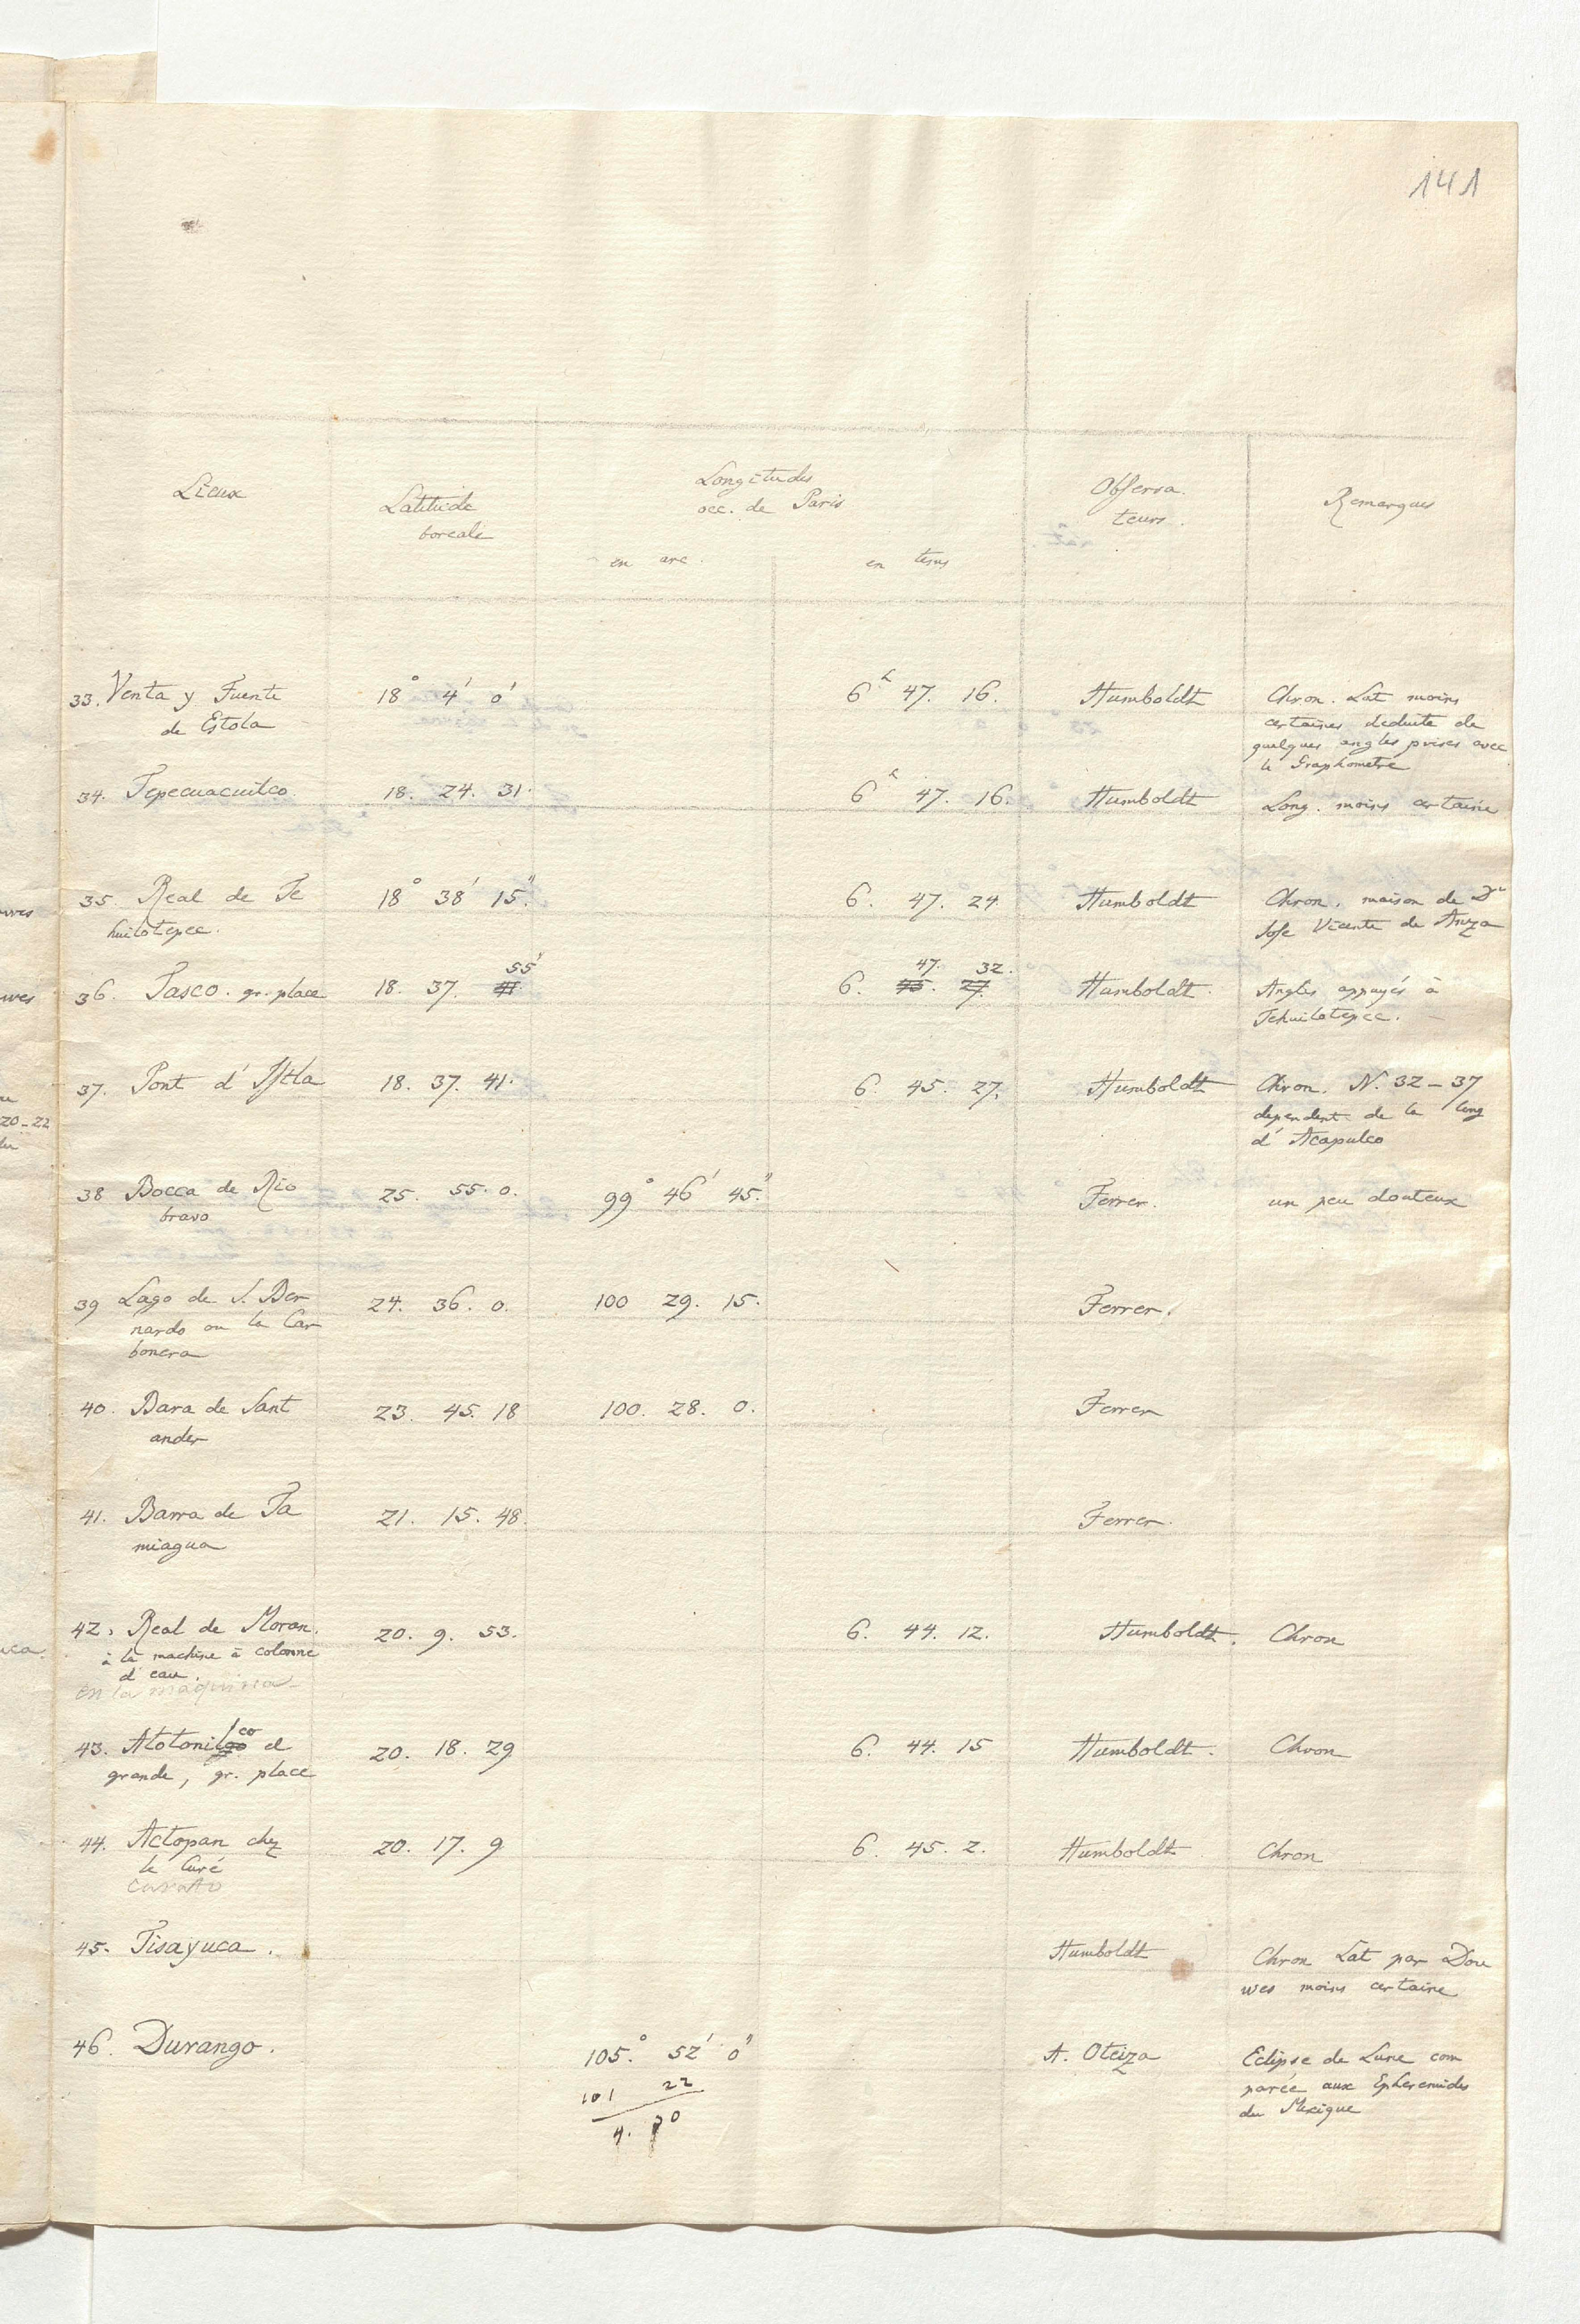 141
Lieux
Latitude
boreale
Longitudes
occ. de Paris
en arc.
en tems
Observa
teurs.
Remarques
33. Venta y Fuente
de Estola
18° 4' 0'
6h 47. 16.
Humboldt
Chron. Lat moins
certaines deduite de
quelques angles prises avec
le Graphometre
34. Tepecuacuilco.
18. 24. 31.
6h 47. 16.
Humboldt
Long. moins certaine
35. Real de Te
huilotepec.
18° 38' 15."
6. 47. 24
Humboldt
Chron. maison de Dn
Jose Vicente de Anza
36. Tasco. gr. place
18. 37. 55'
6. 47. 32.
45. 27.
Humboldt.
Angles appuyés à
Tehuilotepec.
37. Pont d'Istla
18. 37. 41.
6. 45. 27.
Humboldt
Chron. N. 32-37
dependent de la long
d'Acapulco
38 Bocca de Rio
bravo
25. 55. 0.
99° 46' 45."
Ferrer.
un peu douteux
39 Lago de S. Ber
nardo ou la Car
bonera
24. 36. 0.
100 29. 15.
Ferrer.
40. Bara de Sant
ander
23. 45. 18
100. 28. 0.
Ferrer
41. Barra de Ta
miagua
21. 15. 48.
Ferrer.
42. Real de Moran.
à la machine à colonne
d'eau.
en la maquina
20. 9. 53.
6. 44. 12.
Humboldt.
Chron
43. Atotonilco el
grande, gr. place
20. 18. 29
6. 44. 15
Humboldt.
Chron
44. Actopan chez
le Curé
curato
20. 17. 9
6. 45. 2.
Humboldt
Chron
45. Tisayuca.
Humboldt
Chron Lat par Dou
wes moins certaine
46. Durango.
105.° 52' 0"
101 22
4. 30
A. Oteiza
Eclipse de Lune com
parée aux Ephemerides
du Mexique